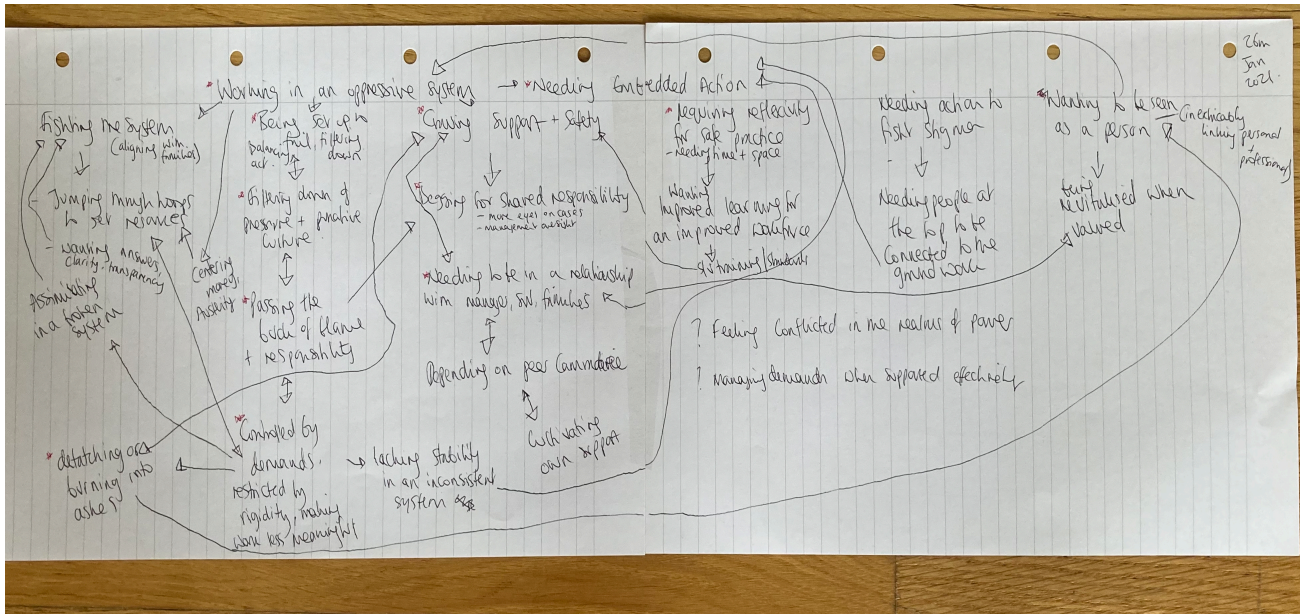 26th
Jan
2021.
* Working in an oppressive system → * Needing Embedded Action
Fighting the system
(aligning with
families)
- Jumping through hoops
to get resources
- wanting answers,
clarity, transparency
Assimilating
in a broken
system
Centering
money,
Austerity
* Being set up to
fail, filtering
down
balancing
act.
* Filtering down of
pressure + punitive
culture.
* Passing the
buck of blame
+ responsibility
* Controlled by
demands.
restricted by
rigidity, making
work less meaningful
* detatching or
burning into
ashes
→ lacking stability
in an inconsistent
system
* Craving support + safety
* Begging for shared responsibility
- more eyes on cases
- management oversight
* Needing to be in a relationship
with manager, SW, families
Depending on peer camaraderie
Cultivating
own support
* Requiring reflexivity
for safe practice
- needing time + space
Wanting
improved learning for
an improved workforce
training/standards
Needing action to
fight stigma
-
Needing people at
the top to be
connected to the
ground work
* Wanting to be seen
as a person
(inextricably
linking personal
+
professional)
being
revitalised when
valued
? Feeling conflicted in the realms of power
? Managing demands when supported effectively